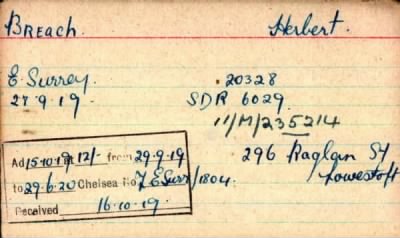 BREACH. Herbert.
E. Surrey. 20328
27.9.19. SDR 6029
11/M/235214
Ad 15-10-19 at 12/- from 29-9-19 296 Raglan St
to 29.6.20 Chelsea No. 7 E Surr/1804. Lowestoft
Received 16.10.19.